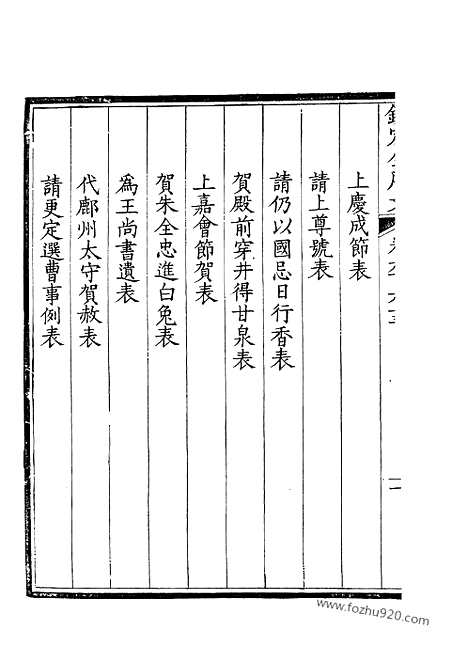 上慶成節表
請上尊號表
請仍以國忌日行香表
賀殿前穿井得甘泉表
上嘉會節賀表
賀朱全忠進白兔表
爲王尚書遺表
代鄜州太守賀赦表
請更定選曹事例表
www.fozhu920.com